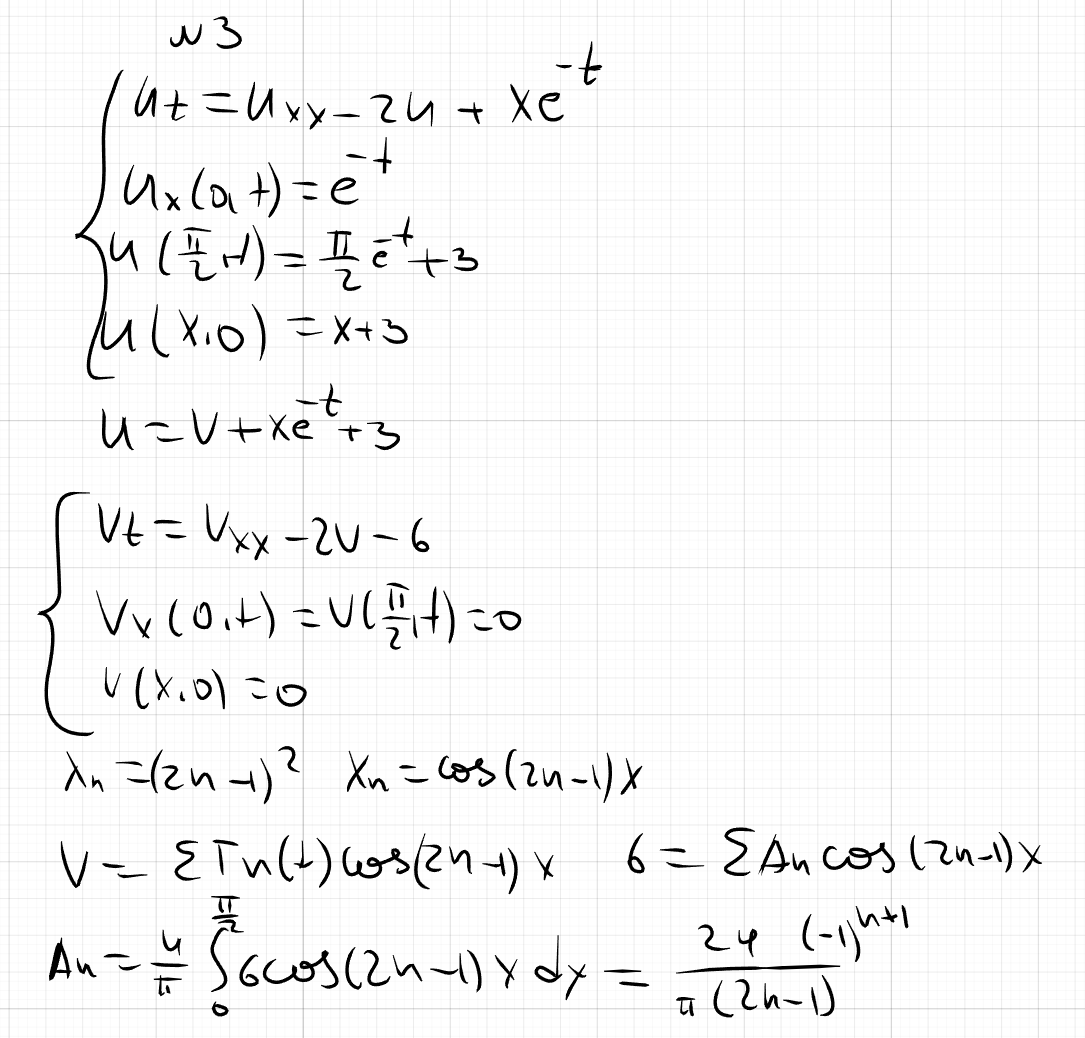 №3
u_t = u_xx - 2u + xe^{-t}
u_x(0,t) = e^{-t}
u(π/2,t) = π/2 e^{-t} + 3
u(x,0) = x+3
u = v + xe^{-t} + 3
v_t = v_xx - 2v - 6
v_x(0,t) = v(π/2,t) = 0
v(x,0) = 0
λ_n = (2n-1)^2 X_n = cos(2n-1)x
v = ΣT_n(t)cos(2n-1)x 6 = ΣA_n cos(2n-1)x
A_n = 4/π ∫_0^{π/2} 6cos(2n-1)x dx = 24 (-1)^{n+1} / π(2n-1)